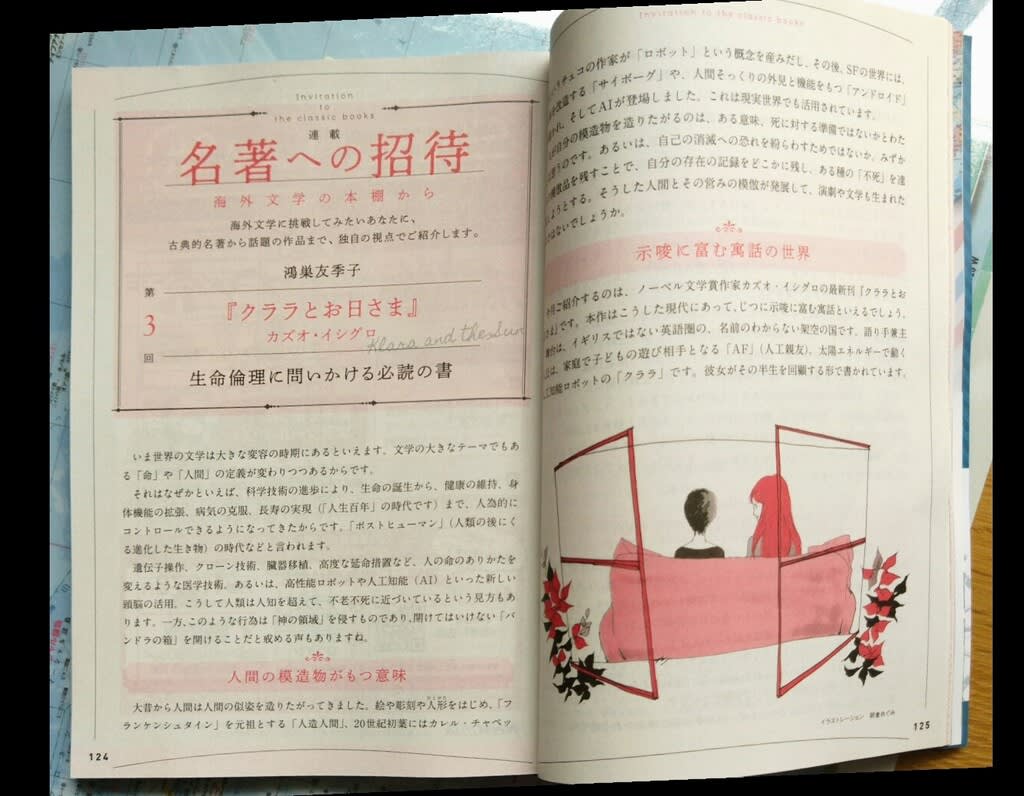 Invitation
to
the classic books
連載
名著への招待
海外文学の本棚から
海外文学に挑戦してみたいあなたに、
古典的名著から話題の作品まで、独自の視点でご紹介します。
鴻巣友季子
第3回
『クララとお日さま』
カズオ・イシグロ
Klara and the Sun
生命倫理に問いかける必読の書
いま世界の文学は大きな変容の時期にあるといえます。文学の大きなテーマでもあ
る「命」や「人間」の定義が変わりつつあるからです。
それはなぜかといえば、科学技術の進歩により、生命の誕生から、健康の維持、身
体機能の拡張、病気の克服、長寿の実現（「人生百年」の時代です）まで、人為的に
コントロールできるようになってきたからです。「ポストヒューマン」（人類の後にく
る進化した生き物）の時代などと言われます。
遺伝子操作、クローン技術、臓器移植、高度な延命措置など、人の命のありかたを
変えるような医学技術。あるいは、高性能ロボットや人工知能（AI）といった新しい
頭脳の活用。こうして人類は人知を超えて、不老不死に近づいているという見方もあ
ります。一方、このような行為は「神の領域」を侵すものであり、開けてはいけない「パ
ンドラの箱」を開けることだと戒める声もありますね。
人間の模造物がもつ意味
大昔から人間は人間の似姿を造りたがってきました。絵や彫刻や人形をはじめ、「フ
ランケンシュタイン」を元祖とする「人造人間」、20世紀初葉にはカレル・チャペッ
124
Invitation to the classic books
チェコの作家が「ロボット」という概念を産みだし、その後、SFの世界には、
改造する「サイボーグ」や、人間そっくりの外見と機能をもつ「アンドロイド」
れ、そしてAIが登場しました。これは現実世界でも活用されています。
自分の模造物を造りたがるのは、ある意味、死に対する準備ではないかとわた
うのです。あるいは、自己の消滅への恐れを紛らわすためではないか。みずか
品を残すことで、自分の存在の記録をどこかに残し、ある種の「不死」を達
ようとする。そうした人間とその営みの模倣が発展して、演劇や文学も生まれた
はないでしょうか。
示唆に富む寓話の世界
ご紹介するのは、ノーベル文学賞作家カズオ・イシグロの最新刊『クララとお
さま』です。本作はこうした現代にあって、じつに示唆に富む寓話といえるでしょう。
台は、イギリスではない英語圏の、名前のわからない架空の国です。語り手兼主
は、家庭で子どもの遊び相手となる「AF」（人工親友）、太陽エネルギーで動く
工知能ロボットの「クララ」です。彼女がその半生を回顧する形で書かれています。
イラストレーション
125